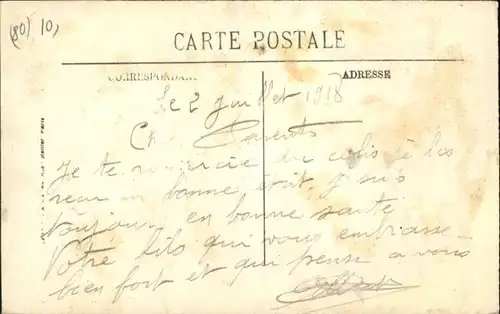 (80) 10,
CARTE POSTALE
CORRESPONDANCE
ADRESSE
Le 2 Juillet 1918
Parents
Je te remercie du colis je les
reçu en bonne état, Je suis
toujour en bonne santé
Votre fils qui vous embrasse
bien fort et qui pense a vous